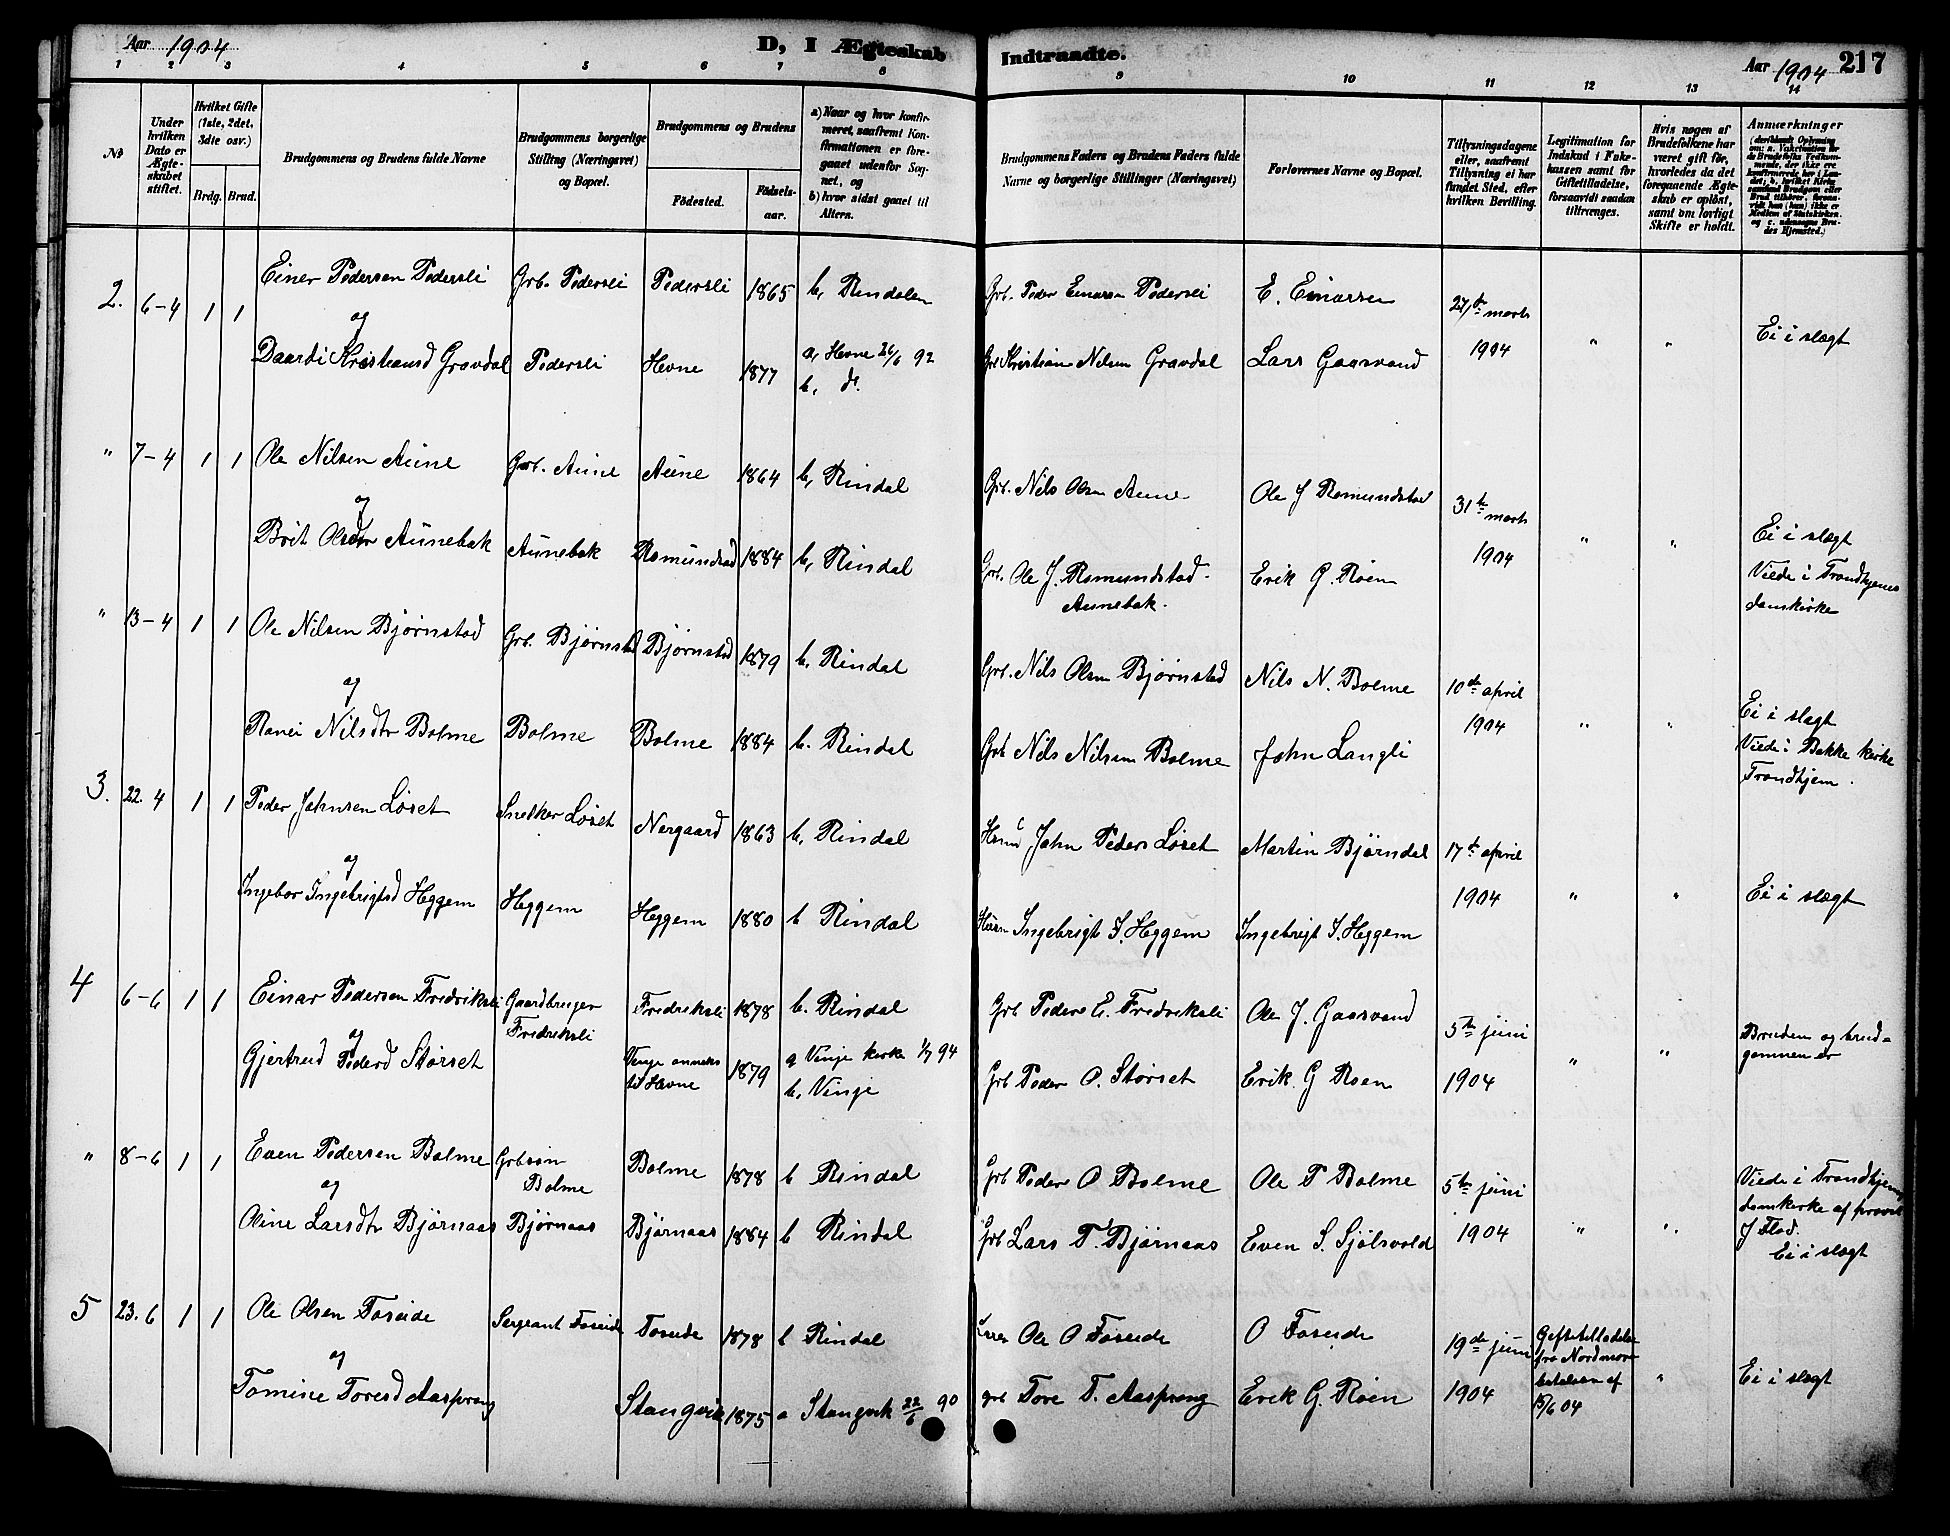 Aar 1904
D, I Ægteskab Indtraadte.
Aar 1904 217
1 2 3 4 5 6 7 8 9 10 11 12 13 14
No
Under hvilken Dato er Ægteskabet stiftet.
Hvilket Gifte (1ste, 2det, 3dte osv.)
Brdg. Brud.
Brudgommens og Brudens fulde Navne
Brudgommens borgerlige Stilling (Næringsvei) og Bopæl.
Brudgommens og Brudens
Fødested.
Fødselsaar.
a) Naar og hvor konfirmeret, saafremt Konfirmationen er foregaaet udenfor Sognet, og
b) hvor sidst gaaet til Alters.
Brudgommens Faders og Brudens Faders fulde Navne og borgerlige Stillinger (Næringsvei)
Forlovernes Navne og Bopæl.
Tillysningsdagene eller, saafremt Tillysning ei har fundet Sted, efter hvilken Bevilling.
Legitimation for Indskud i Fakkassen samt for Giftetilladelse, forsaavidt saadan tiltrænges.
Hvis nogen af Brudefolkene har været gift før, hvorledes da det foregaaende Ægteskab er opløst, samt om lovligt Skifte er holdt.
Anmærkninger
2. 6-4 1 1 Einer Pedersen Pedersli Grb. Pedersli Pedersli 1865 b, Rindalen Grb. Peder Einarsen Pedersli E. Einarsen 27de marts 1904 " " Ei i slægt
og
Daardi Kristiansd Gravdal Pedersli Hevne 1877 a, Hevne 26/6 92 b, do. Grb Kristian Nilsen Gravdal Lars Gaasvand
" 7-4 1 1 Ole Nilsen Aune Grb. Aune Aune 1864 b, Rindal Grb. Nils Olsen Aune Ole J Romundstad 31te marts 1904 " " Ei i slægt
og
Brit Olsdtr Aunebak Aunebak Romundstad 1884 b, Rindal Grb. Ole J. Romundstad Aunebak. Erik G. Røen Viede i Trondhjems domkirke
" 13-4 1 1 Ole Nilsen Bjørnstad Grb. Bjørnstad Bjørnstad 1879 b, Rindal Grb. Nils Olsen Bjørnstad Nils N. Bolme 10de april 1904 " " Ei i slægt
og
Ranei Nilsdtr Bolme Bolme Bolme 1884 b. Rindal Grb Nils Nilsen Bolme John Langli Viede i Bakke kirke Trondhjem.
3. 22.4 1 1 Peder Johnsen Løset Snekker Løset Nergaard 1863 b, Rindal John Peders Løset Martin Bjørndal 17de april 1904 " " Ei i slægt
og
Ingebor Ingebrigtsd Heggem Heggem Heggem 1880 b Rindal Ingebrigt I. Heggem Ingebrigt I. Heggem
4 6-6 1 1 Einar Pedersen Fredriksli Gaardbruger Fredriksli Fredriksli 1878 b. Rindal Grb Peder E. Fredriksli Ole J. Gaasvand 5te juni 1904 " " Bruden og brudgommen er
og
Gjertrud Pedersd Størset Vinje anneks til Hevne 1879 a Vinje kirke 1/7 94 b, Vinje Grb Peder O. Størset Erik. G Røen
" 8-6 1 1 Even Pedersen Bolme Grbsøn Bolme Bolme 1878 b Rindal Grb Peder O Bolme Ole P Bolme 5te juni 1904 " " Viede i Trondhjems domkirke af provst J Flod.
og
Oline Larsdtr Bjørnaas Bjørnaas Bjørnaas 1884 b Rindal Grb Lars T. Bjørnaas Even S. Sjølsvold Ei i slægt
5 23.6 1 1 Ole Olsen Foseide Sergeant Foseide Foseide 1878 b Rindal Ole O Foseide O Foseide 19de juni 1904 Giftetilladelse fra Nordmøre bataljon af 15/6 04 " Ei i slægt
og
Tomine Toresd Aasprong Stangvik 1875 a Stangvik 22/6 90 grb Tore T. Aasprong Erik G. Røen